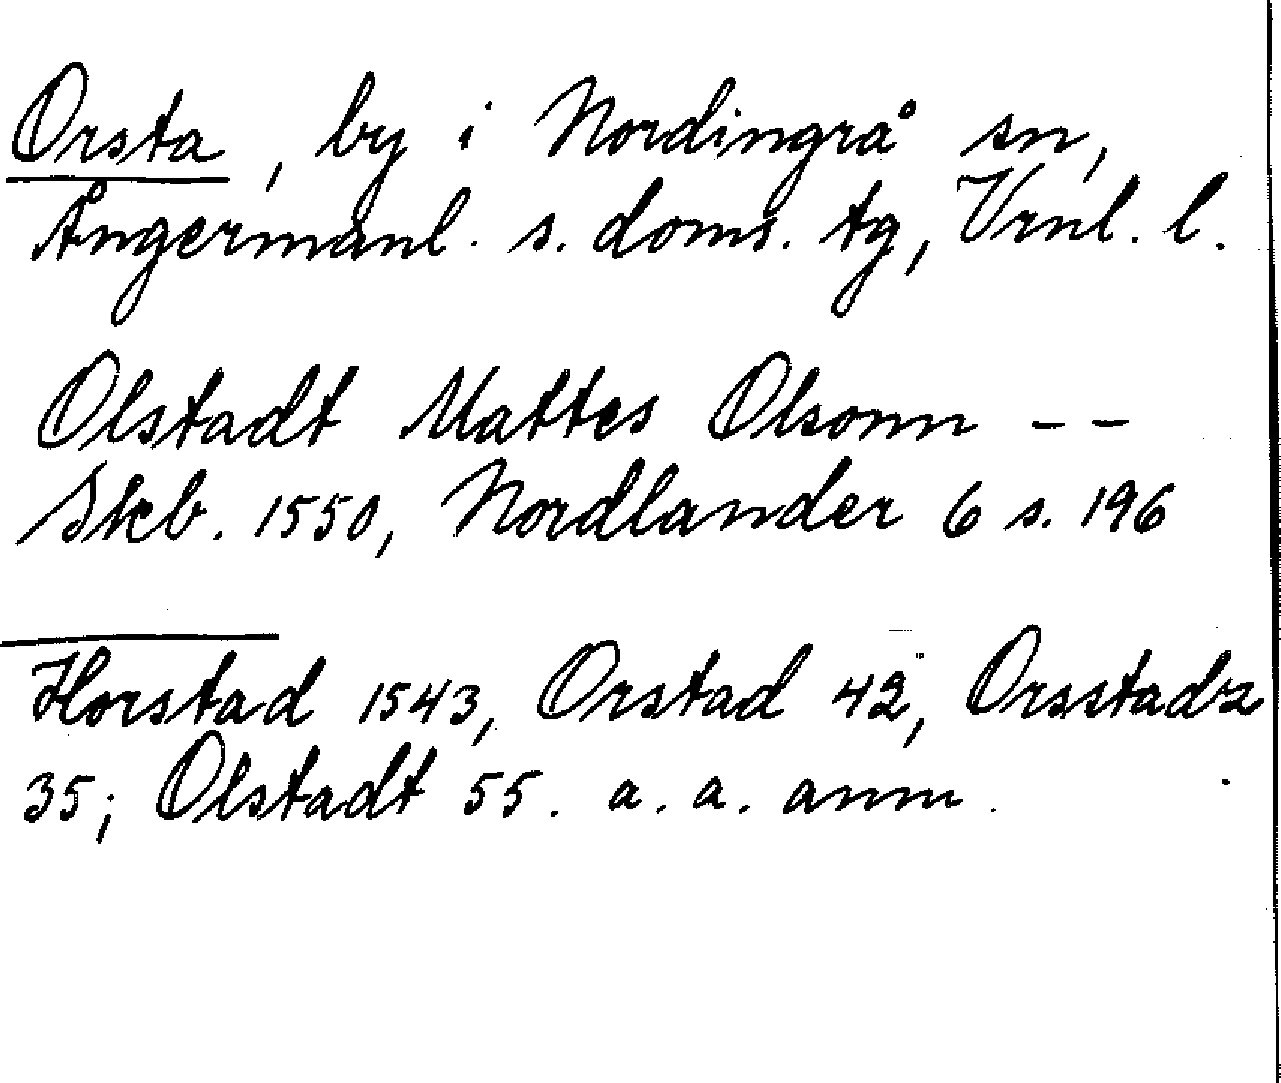 Orsta, by i Nordingrå sn,
Ångermanl. s. doms. tg, Vrnl. l.
Olstadt Mattes Olsonn - -
Skb. 1550, Nordlander 6 s. 196
Horstad 1543, Orstad 42, Orsstadz
35; Olstadt 55. a. a. anm.